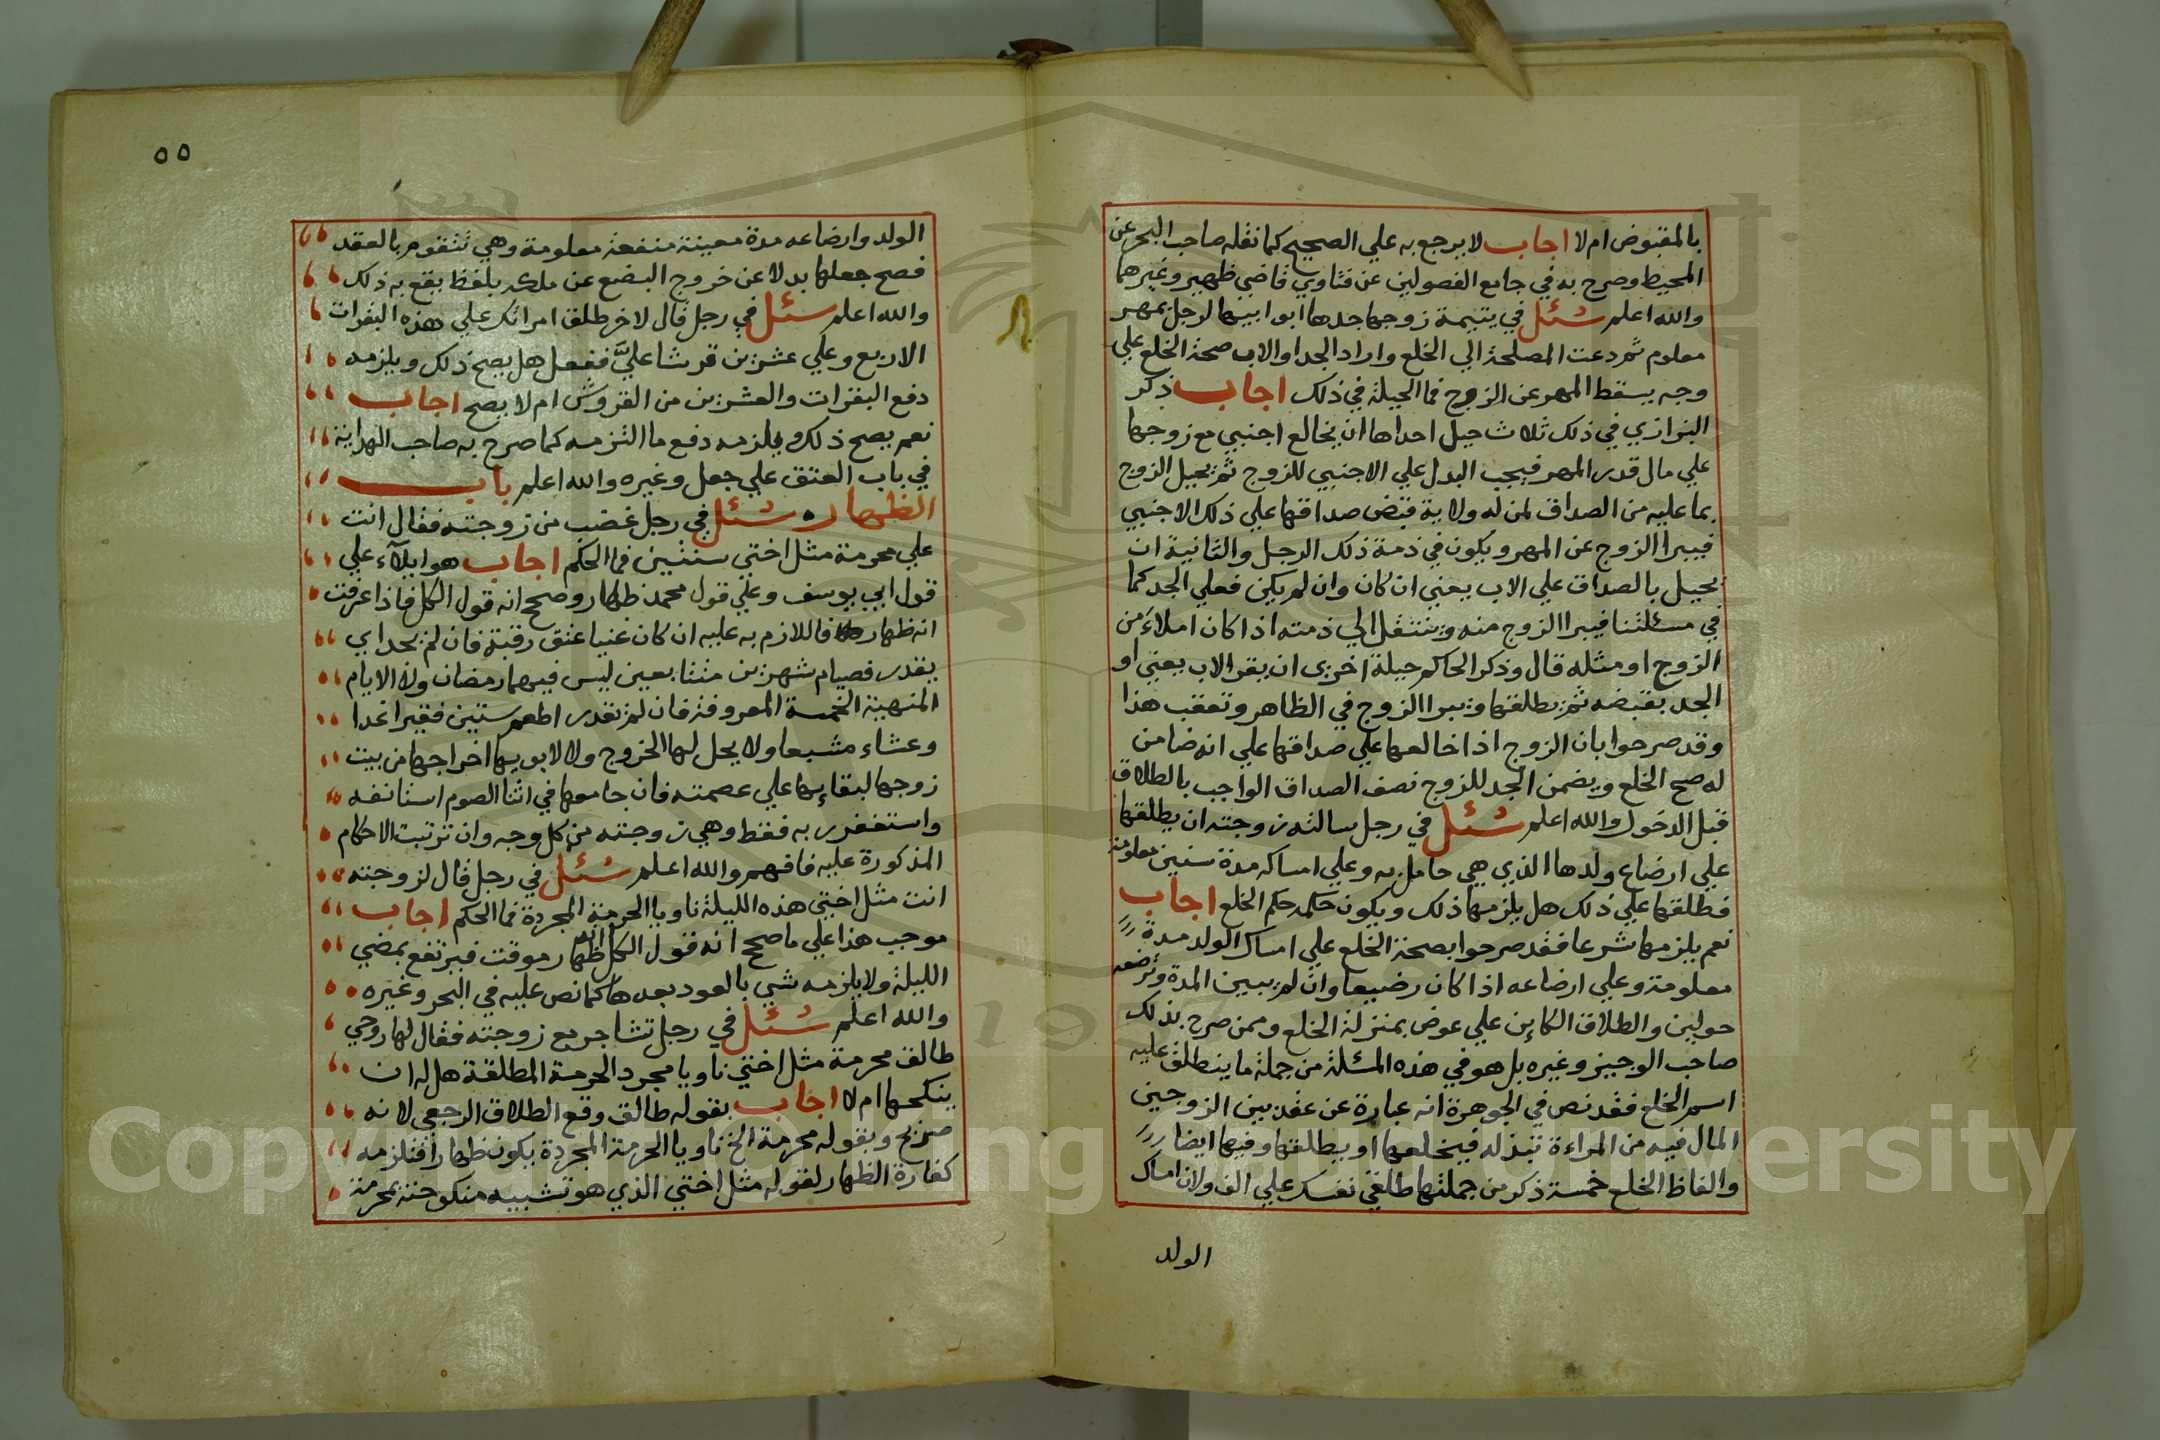 بالمقبوض ام لا اجاب لا يرجع به علي الصحيح كما نقله صاحب البحر عن
المحيط وصرح به في جامع الفصولين عن فتاوي قاضي ظهير وغيرهما
والله اعلم سئل في يتيمة زوجها جدها ابو ابيها لرجل بمهر
معلوم ثم دعت المصلحة الي الخلع واراد الجد او الاب صحة الخلع علي
وجه يسقط المهر عن الزوج فما الحيلة في ذلك اجاب ذكر
البزازي في ذلك ثلاث حيل احداها ان يخالع اجنبي مع زوجها
علي مال قدر المهر فيجب البدل علي الاجنبي للزوج ثم يحيل الزوج
بما عليه من الصداق لمن له ولاية قبض صداقها علي ذلك الاجنبي
فيبرا الزوج عن المهر ويكون في ذمة ذلك الرجل والثانية ان
يحيل بالصداق علي الاب يعني ان كان وان لم يكن فعلي الجد كما
في مسئلتنا فيبرا الزوج منه وينتقل الي ذمته اذا كان املاء من
الزوج او مثله قال وذكر الحاكم حيلة اخري ان يقر الاب يعني او
الجد بقبضه ثم يطلقها ويبرا الزوج في الظاهر وتعقب هذا
وقد صرحوا بان الزوج اذا خالعها علي صداقها علي انه ضامن
له صح الخلع ويضمن الجد للزوج نصف الصداق الواجب بالطلاق
قبل الدخول والله اعلم سئل في رجل سالته زوجته ان يطلقها
علي ارضاع ولدها الذي هي حامل به وعلي امساكه مدة سنين معلومة
فطلقها علي ذلك هل يلزمها ذلك ويكون حكمه حكم الخلع اجاب
نعم يلزمها شرعا فقد صرحوا بصحة الخلع علي امساك الولد مدة
معلومة وعلي ارضاعه اذا كان رضيعا وان لم يبين المدة وترضعه
حولين والطلاق الكاين علي عوض بمنزلة الخلع وممن صرح بذلك
صاحب الوجيز وغيره بل هو في هذه المسئلة من جملة ما ينطلق عليه
اسم الخلع فقد نص في الجوهرة انه عبارة عن عقد بين الزوجين
المال فيه من المراءة تبذله فيخلعها او يطلقها وفيها ايضا
والفاظ الخلع خمسة ذكر من جملتها طلقي نفسك علي الف ولان امساك
الولد
٥٥
الولد وارضاعه مدة معينة منفعة معلومة وهي تتقوم بالعقد
فصح جعلها بدلا عن خروج البضع عن ملكه بلفظ يقع به ذلك
والله اعلم سئل في رجل قال لاخر طلق امراتك علي هذه البقرات
الاربع وعلي عشرين قرشا عليَّ ففعل هل يصح ذلك ويلزمه
دفع البقرات والعشرين من القروش ام لا يصح اجاب
نعم يصح ذلك ويلزمه دفع ما التزمه كما صرح به صاحب الهداية
في باب العتق علي جعل وغيره والله اعلم باب
الظهار سئل في رجل غضب من زوجته فقال انت
علي محرمة مثل اختي سنتين فما الحكم اجاب هو ايلاء علي
قول ابي يوسف وعلي قول محمد ظهار وصحح انه قول الكل فاذا عرفت
انه ظهار فاللازم به عليه ان كان غنيا عتق رقبة فان لم يجد اي
يقدر فصيام شهرين متتابعين ليس فيهما رمضان ولا الايام
المنهية الخمسة المعروفة فان لم يقدر اطعم ستين فقيرا غدا
وعشاء مشبعا ولا يحل لها الخروج ولا لابويها اخراجها من بيت
زوجها لبقايها علي عصمته فان جامعها في اثنا الصوم استانفه
واستغفر ربه فقط وهي زوجته من كل وجه وان ترتبت الاحكام
المذكورة عليه فافهم والله اعلم سئل في رجل قال لزوجته
انت مثل اختي هذه الليلة ناويا الحرمة المجردة فما الحكم اجاب
موجب هذا علي ما صحح انه قول الكل انه ظهار موقت فيرتفع بمضي
الليلة ولا يلزمه شي بالعود بعدها كما نص عليه في البحر وغيره
والله اعلم سئل في رجل تشاجر مع زوجته فقال لها روحي
طالق محرمة مثل اختي ناويا مجرد الحرمة المطلقة هل له ان
ينكحها ام لا اجاب بقوله طالق وقع الطلاق الرجعي لانه
صريح وبقوله محرمة الخ ناويا الحرمة المجردة يكون ظهارا فتلزمه
كفارة الظهار لقوله مثل اختي الذي هو تشبيه منكوحته بمحرمة